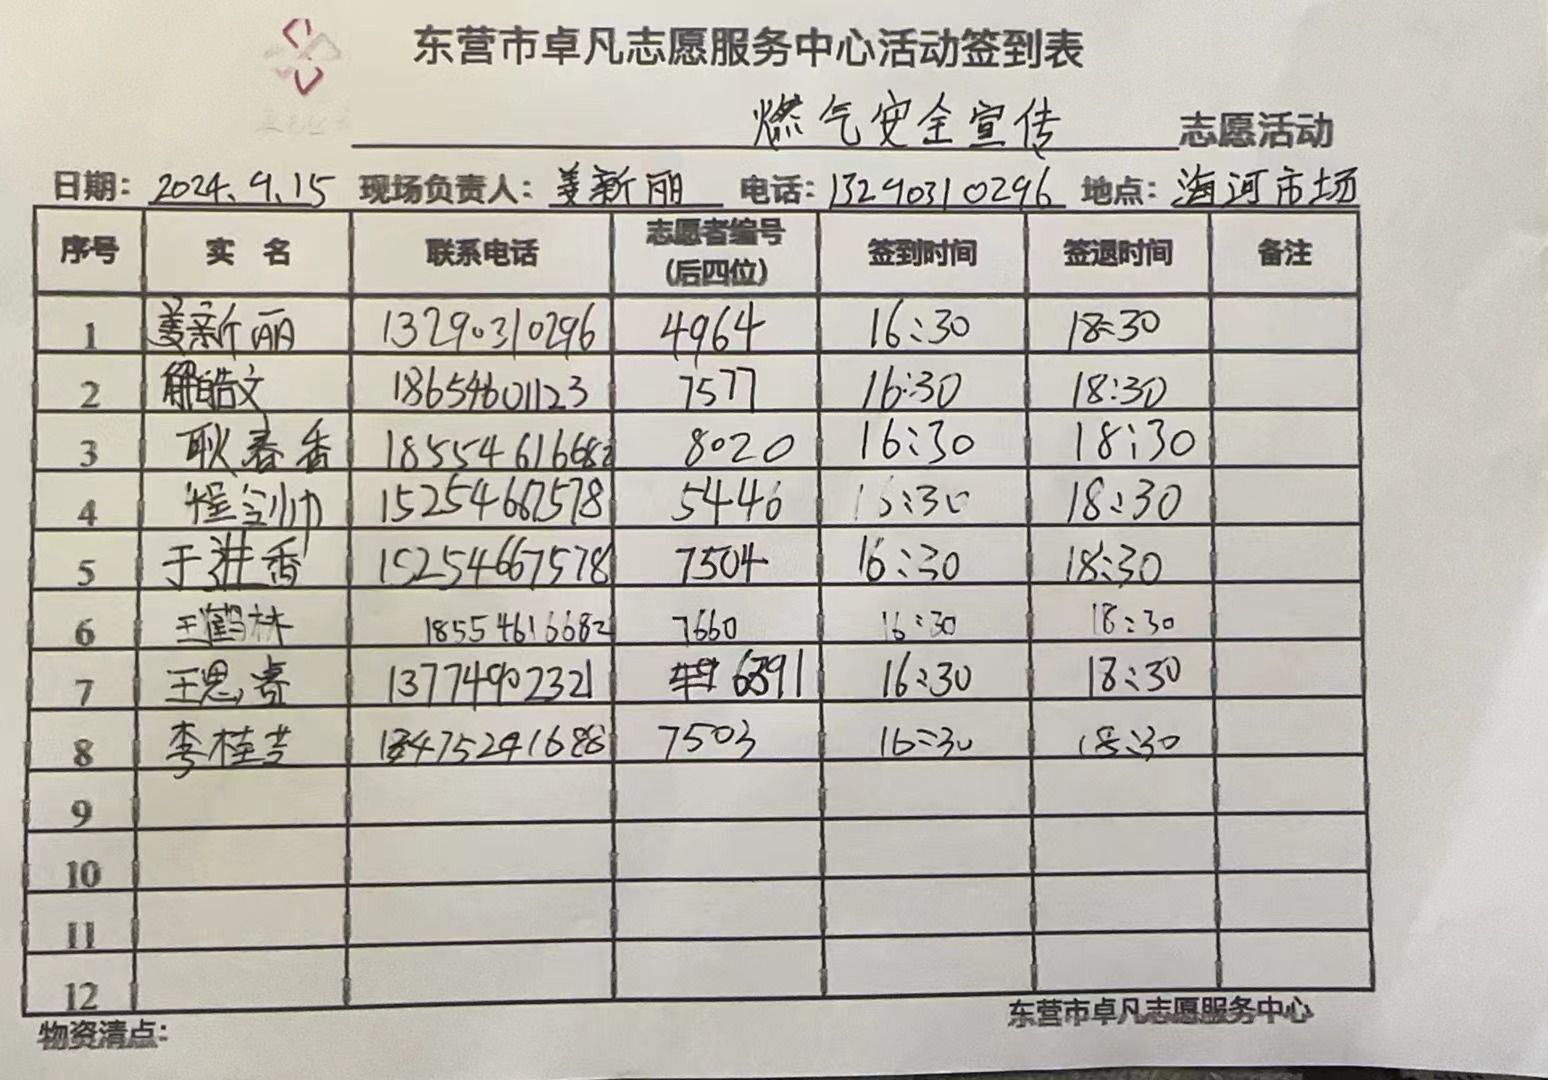 东营市卓凡志愿服务中心活动签到表
燃气安全宣传 志愿活动
日期: 2024.9.15 现场负责人: 姜新丽 电话: 13290310296 地点: 海河市场
序号 实 名 联系电话 志愿者编号(后四位) 签到时间 签退时间 备注
1 姜新丽 13290310296 4964 16:30 18:30
2 解皓文 18654601123 7577 16:30 18:30
3 耿春香 18554616682 8020 16:30 18:30
4 15254667578 5446 16:30 18:30
5 于进香 15254667578 7504 16:30 18:30
6 王鹤林 18554616682 7660 16:30 18:30
7 王思睿 13774902321 6391 16:30 18:30
8 李桂芳 18475241688 7503 16:30 18:30
9
10
11
12
物资清点: 东营市卓凡志愿服务中心